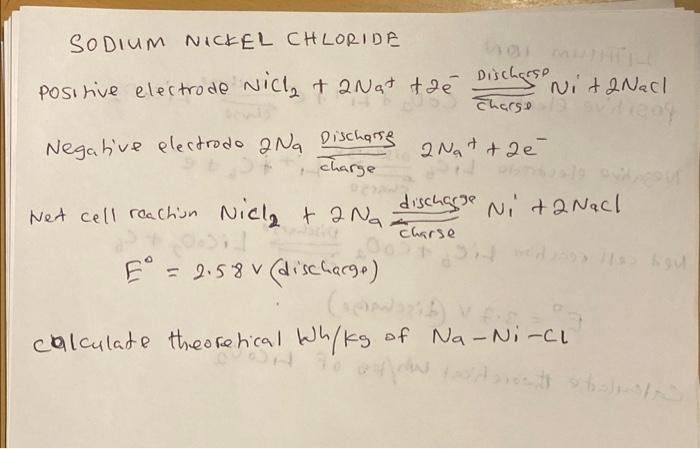 SODIUM NICKEL CHLORIDE
Positive electrode NiCl₂ + 2Na⁺ + 2e⁻ Discharge ⇌ charge Ni + 2NaCl
Negative electrode 2Na Discharge ⇌ charge 2Na⁺ + 2e⁻
Net cell reaction NiCl₂ + 2Na discharge ⇌ charge Ni + 2NaCl
E° = 2.58 V (discharge)
calculate theoretical Wh/kg of Na-Ni-Cl